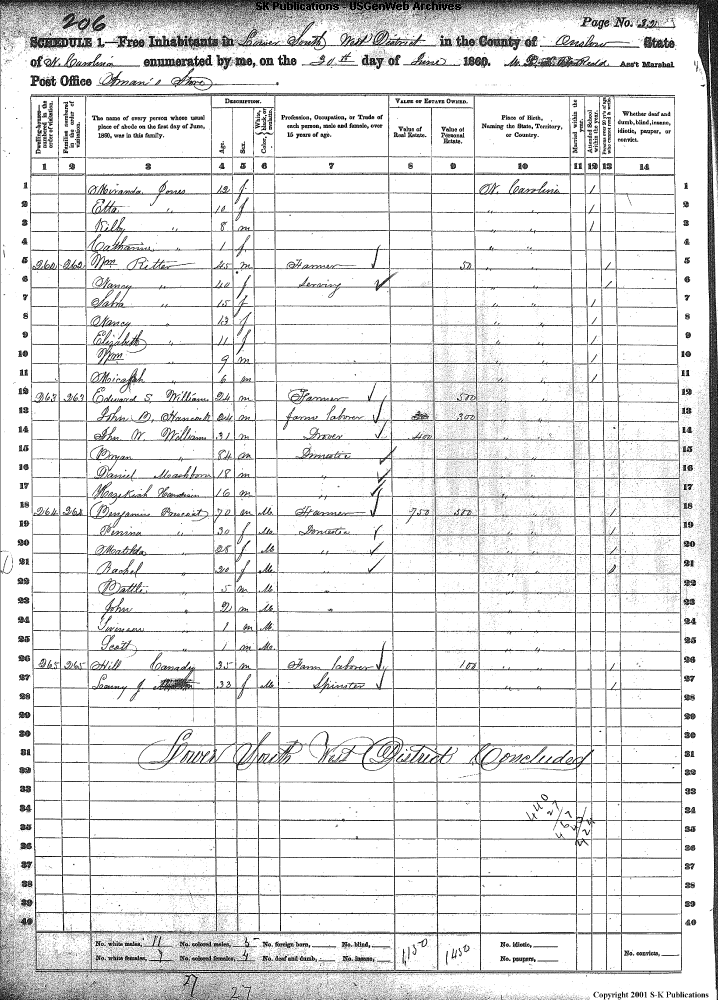 SK Publications - USGenWeb Archives
206
Page No. 32
SCHEDULE 1.—Free Inhabitants in Lower South West District in the County of Onslow State
of N. Carolina enumerated by me, on the 20th day of June 1860. Ass't Marshal
Post Office Aman's Store.
Dwelling-houses—numbered in the order of visitation.
Families numbered in the order of visitation.
The name of every person whose usual place of abode on the first day of June, 1860, was in this family.
DESCRIPTION.
Age.
Sex.
Color, White, black, or mulatto.
Profession, Occupation, or Trade of each person, male and female, over 15 years of age.
VALUE OF ESTATE OWNED.
Value of Real Estate.
Value of Personal Estate.
Place of Birth, Naming the State, Territory, or Country.
Married within the year.
Attended School within the year.
Whether deaf and dumb, blind, insane, idiotic, pauper, or convict.
1 2 3 4 5 6 7 8 9 10 11 12 13 14
1 Miranda Jones 12 f N. Carolina / 1
2 Etta " 10 f " " / 2
3 Kilby " 8 m " " / 3
4 Catharine " 1 f " " 4
5 260 262 Wm Ritter 45 m Farmer 50 " / 5
6 Nancy " 40 f Serving " " / 6
7 Sabra " 15 f " " / 7
8 Nancy " 13 f " " / 8
9 Elizabeth " 11 f " " / 9
10 Wm " 9 m " " / 10
11 Micajah " 6 m " " / 11
12 263 263 Edward S. William 24 m Farmer 500 12
13 John B. Hancock 24 m farm laborer 300 " " 13
14 John W. William 31 m Drover 400 " " 14
15 Bryan " 24 m Domestic " " 15
16 Daniel Mashborn 18 m " " " 16
17 Hezekiah 16 m " " " 17
18 264 264 Benjamin 70 m Mu. Farmer 750 500 " " / 18
19 Penina " 30 f Mu. Domestic " " / 19
20 Matilda " 28 f Mu. " " " / 20
21 Rachel " 20 f Mu. " " " 21
22 Battle " 5 m Mu. " " 22
23 John " 2 m Mu. " " " 23
24 " 1 m Mu. " " 24
25 Scott " 1 m Mu. " " 25
26 265 265 Hill Canady 35 m Farm laborer 100 " " / 26
27 J. 33 f Mu. Spinster " " / 27
28 28
29 29
30 30
31 Lower South West District Concluded 31
32 32
33 33
34 34
35 35
36 36
37 37
38 38
39 39
40 40
No. white males, 11 No. colored males, 5 No. foreign born, No. blind, 1150 1450 No. idiotic, No. convicts,
No. white females, 7 No. colored females, 4 No. deaf and dumb, No. insane, No. paupers,
27 27
Copyright 2001 S-K Publications